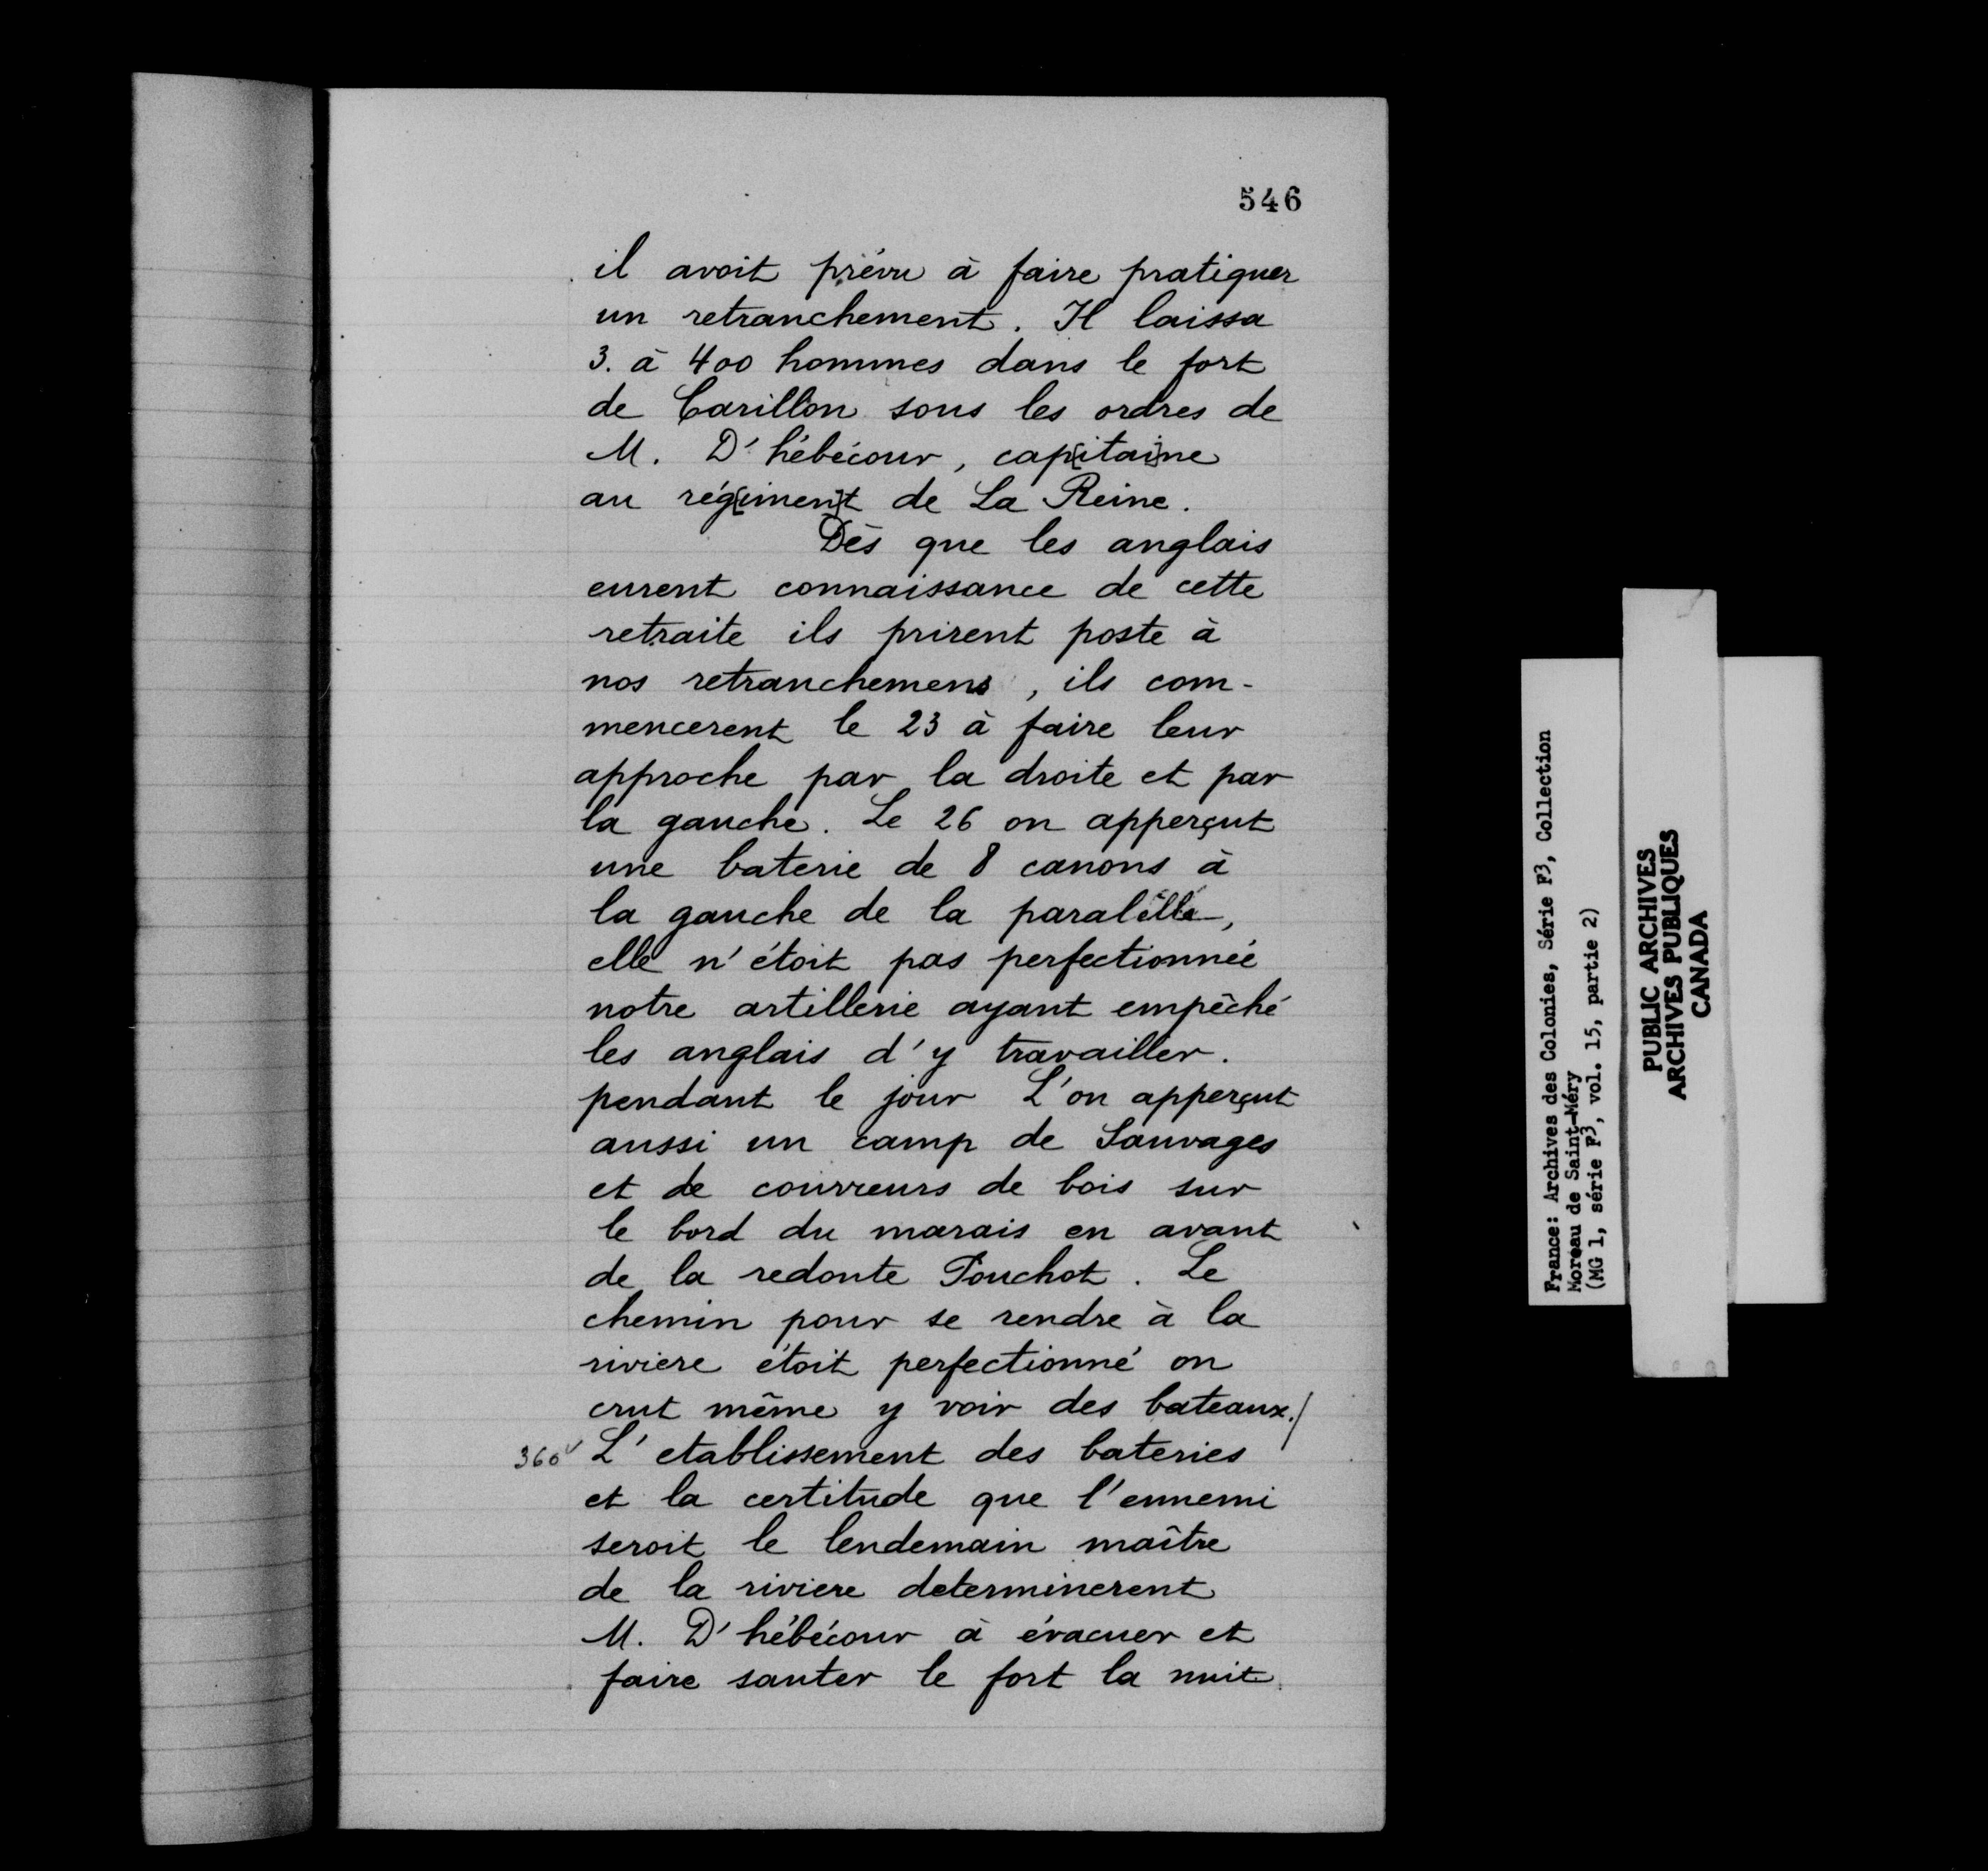 546
il avoit prévu à faire pratiquer
un retranchement. Il laissa
3. à 400 hommes dans le fort
de Carillon sous les ordres de
M. D'hébécour, cap[itai]ne
au rég[imen]t de La Reine.
Dès que les anglais
eurent connaissance de cette
retraite ils prirent poste à
nos retranchemens, ils com-
mencerent le 23 à faire leur
approche par la droite et par
la gauche. Le 26 on apperçut
une baterie de 8 canons à
la gauche de la paralélle,
elle n'étoit pas perfectionnée
notre artillerie ayant empêché
les anglais d'y travailler.
pendant le jour L'on apperçut
aussi un camp de Sauvages
et de courreurs de bois sur
le bord du marais en avant
de la redoute Pouchot. Le
chemin pour se rendre à la
riviere étoit perfectionné on
crut même y voir des bateaux./
360v L'etablissement des bateries
et la certitude que l'ennemi
seroit le lendemain maître
de la riviere determinerent
M. D'hébécour à évacuer et
faire sauter le fort la nuit
France: Archives des Colonies, Série F3, Collection
Moreau de Saint-Méry
(MG 1, série F3, vol. 15, partie 2)
PUBLIC ARCHIVES
ARCHIVES PUBLIQUES
CANADA